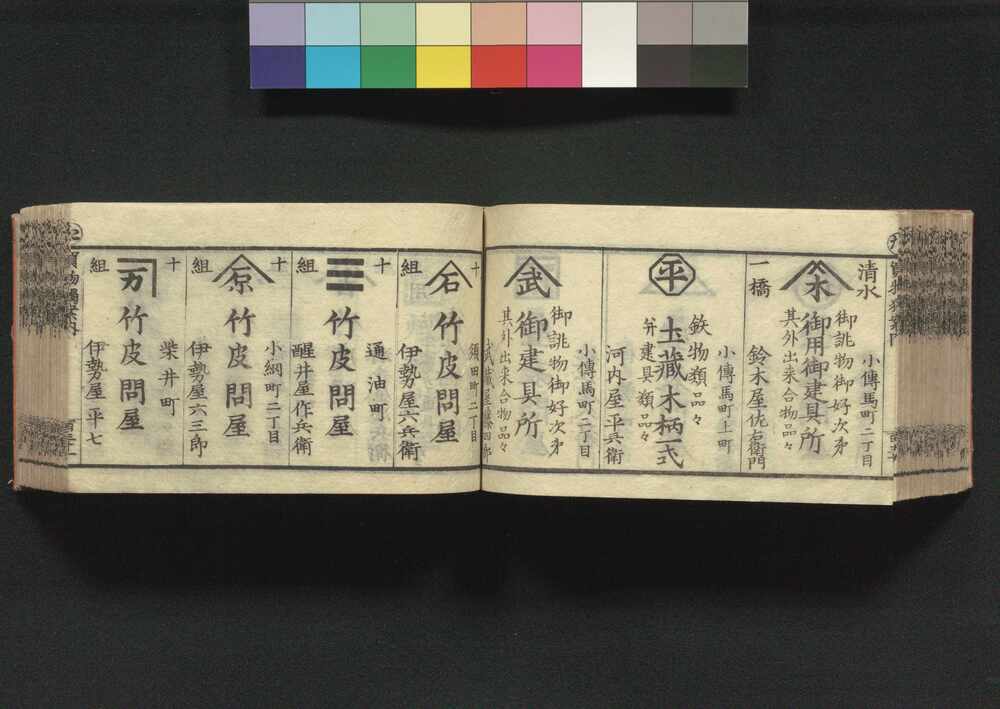 清水
小傳馬町二丁目
御誂物御好次第
御用御建具所
其外出来合物品々
一橋
鈴木屋佐右衛門
小傳馬町上町
平
鉄物類品々
土藏木柄一式
并建具類品々
河内屋平兵衛
小傳馬町二丁目
武
御誂物御好次第
御建具所
其外出来合物品々
十
須田町二丁目
石
竹皮問屋
組
伊勢屋六兵衛
十
通油町
三
竹皮問屋
組
醒井屋作兵衛
十
小網町二丁目
京
竹皮問屋
組
伊勢屋六三郎
十
柴井町
万
竹皮問屋
組
伊勢屋平七